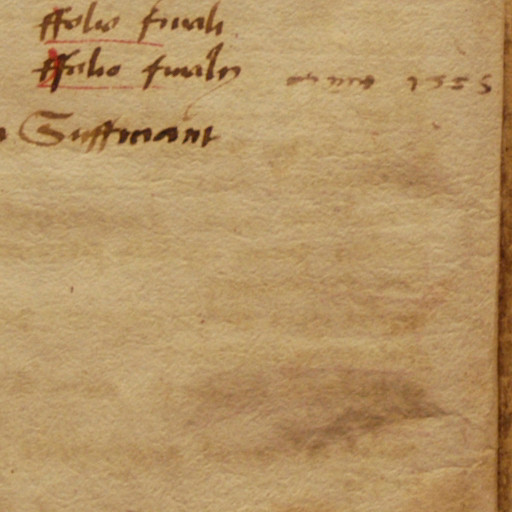 ffolio finali
ffolio finali anno 1555
Sufficiant